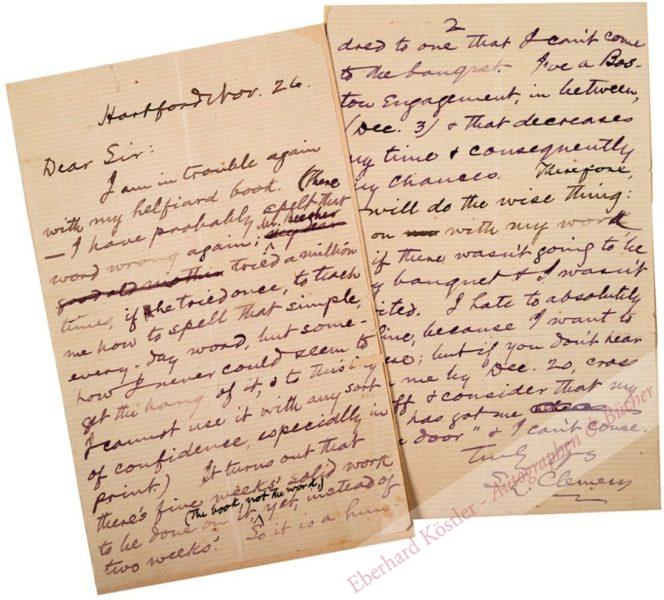 Hartford Nov. 26.
Dear Sir:
I am in trouble again
with my helfiard book. (There
— I have probably spelt that
word wrong again; Mr. Beecher
my dear
good old mother tried a million
times, if she tried once, to teach
me how to spell that simple,
every-day word, but some-
how I never could seem to
get the hang of it, & to this day
I cannot use it with any sort
of confidence, especially in
print.) It turns out that
there's five weeks' solid work
(The book, not the word,)
to be done on it, yet, instead of
two weeks'. So it is a hun-
2
dred to one that I can't come
to the banquet. I've a Bos-
ton Engagement, in between,
(Dec. 3) & that decreases
my time & consequently
my chances. Therefore,
will do the wise thing:
on with my work
if there wasn't going to be
banquet & I wasn't
ited. I hate to absolutely
because I want to
but if you don't hear
me by Dec. 20, cross
& consider that my
has got me
door" & I can't come.
Truly Yours
S L Clemens
Eberhard Köstler - Autographen & Bücher